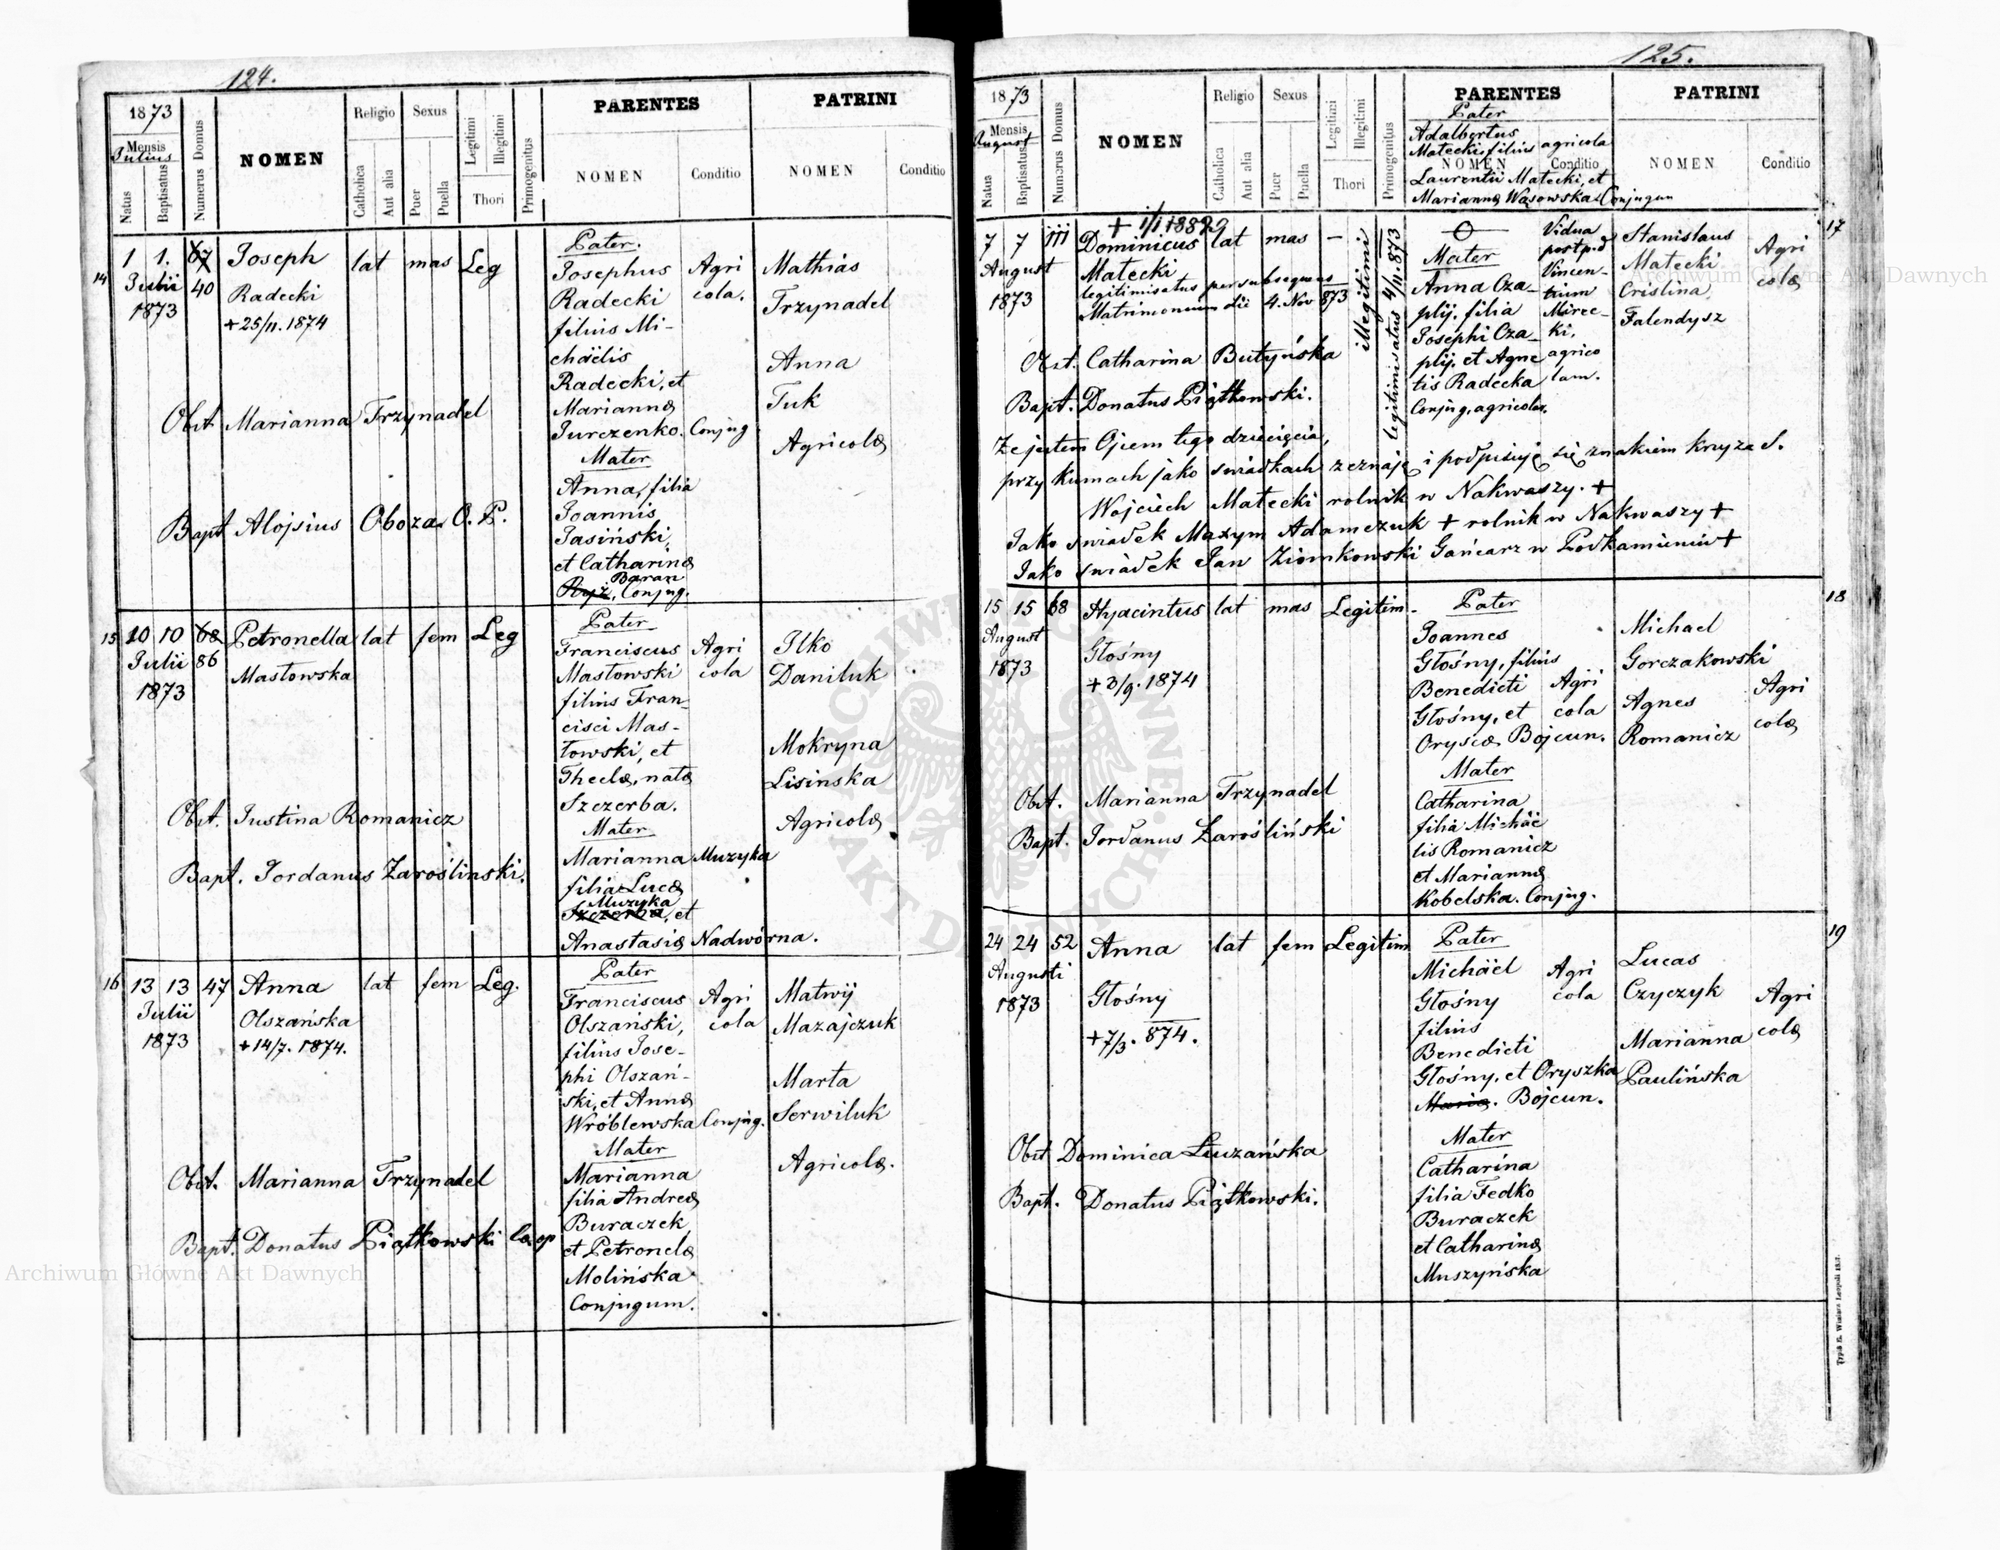 124.
1873
Mensis
Julius
Natus
Baptisatus
Numerus Domus
NOMEN
Religio
Catholica
Aut alia
Sexus
Puer
Puella
Legitimi
Illegitimi
Thori
Primogenitus
PARENTES
NOMEN
Conditio
PATRINI
NOMEN
Conditio
14
1 1. 67 Joseph lat mas Leg
Julii 40 Radecki
1873 +25/11.1874
Pater.
Josephus Agri
Radecki cola.
filius Mi-
chäelis
Radecki, et
Mariannæ
Jurczenko. Conjug
Mater
Anna, filia
Joannis
Jasiński,
et Catharinæ
Baran
Ryż, Conjug.
Mathias
Trzynadel
Anna
Tuk
Agricolæ
Obst Marianna Trzynadel
Bapt Alojsius Oboza. O. P.
15
10 10 68 Petronella lat fem Leg
Julii 86 Masłowska
1873
Pater
Franciscus Agri
Masłowski cola
filius Fran-
cisci Mas-
łowski, et
Theclæ, natæ
Szczerba.
Mater
Marianna Muzyka
filia Lucæ
Muzyka
Szczerba, et
Anastasiæ Nadwórna.
Ilko
Daniluk
Mokryna
Lisinska
Agricolæ
Obst. Justina Romanicz
Bapt. Jordanus Zaroślinski.
16
13 13 47 Anna lat fem Leg.
Julii Olszańska
1873 +14/7. 1874.
Pater
Franciscus Agri
Olszański, cola
filius Jose-
phi Olszań-
ski, et Annæ
Wróblewska Conjug.
Mater
Marianna
filia Andreæ
Buraczek
et Petronelæ
Molińska
Conjugum.
Matwij
Mazajczuk
Marta
Serwiluk
Agricolæ.
Obst. Marianna Trzynadel
Bapt. Donatus Piątkowski
125.
1873
Mensis
August
Natus
Baptisatus
Numerus Domus
NOMEN
Religio
Catholica
Aut alia
Sexus
Puer
Puella
Legitimi
Illegitimi
Thori
Primogenitus
PARENTES
Pater
Adalbertus
Małecki filius agricola
NOMEN Conditio
Laurentii Małecki, et
Mariannæ Wąsowska Conjugum
PATRINI
NOMEN
Conditio
17
7 7 111 Dominicus lat mas –
August Małecki
1873 legitimisatus per subsequens
Matrimonium die 4. Nov 873
illegitimi
legitimisatus 4/11.873
Mater
Anna Cza-
plij, filia
Josephi Cza-
plij, et Agne
tis Radecka
Conjug, agricolar.
Vidua
post p.d.
Vincen-
tium
Mirec-
ki,
agrico
lam.
Stanislaus
Małecki
Cristina
Falendysz
Agri
colæ
Obst. Catharina Butyńska
Bapt. Donatus Piątkowski.
Że jestem Ojcem tego dziecięcia,
przy kumach jako świadkach zeznaję i podpisuję się znakiem krzyża S.
Wojciech Małecki rolnik w Nakwaszy. +
Jako świadek Maxym Adamczuk + rolnik w Nakwaszy +
Jako świadek Jan Ziomkowski Gańcarz w Podkamieniu +
18
15 15 68 Hyacintus lat mas Legitim-
August Głośny
1873 +3/9. 1874
Pater
Joannes
Głośny, filius
Benedicti Agri
Głośny, et cola
Orysæ Bojcun.
Mater
Catharina
filia Michäe
lis Romanicz
et Mariannæ
Kobelska. Conjug.
Michael
Gorczakowski
Agnes
Romanicz
Agri
colæ
Obst. Marianna Trzynadel
Bapt. Jordanus Zarośliński
19
24 24 52 Anna lat fem Legitim
Augusti
1873 Głośny
+7/3. 874.
Pater
Michäel Agri
Głośny cola
filius
Benedicti
Głośny, et Oryszka
Mariæ. Bojcun.
Mater
Catharina
filia Fedko
Buraczek
et Catharinæ
Muszyńska
Lucas
Czyczyk
Marianna
Paulińska
Agri
colæ
Obst Dominica Luzańska
Bapt. Donatus Piątkowski.
Typis E. Winiarz Leopoli
Archiwum Główne Akt Dawnych
Archiwum Główne Akt Dawnych
ARCHIWUM GŁÓWNE AKT DAWNYCH